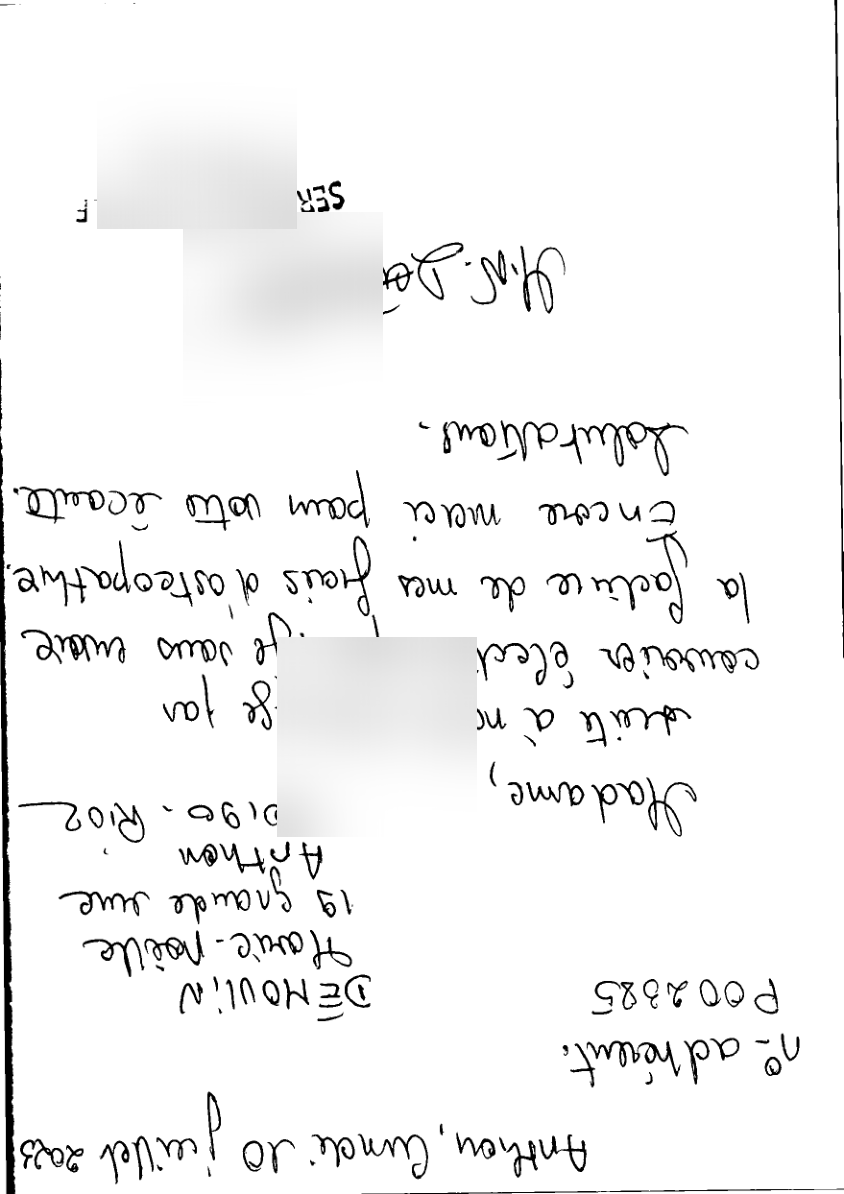 Anthon, lundi 10 juillet 2023
n° adhérent.
P002385
DEMOULIN
Marie-Noëlle
19 grande rue
Anthon
Madame,
suite à
je par
courrier
je vous envoie
la facture de mes frais d'osteopathie.
Encore merci pour votre écoute.
Salutations.
M.N. De
SER
F